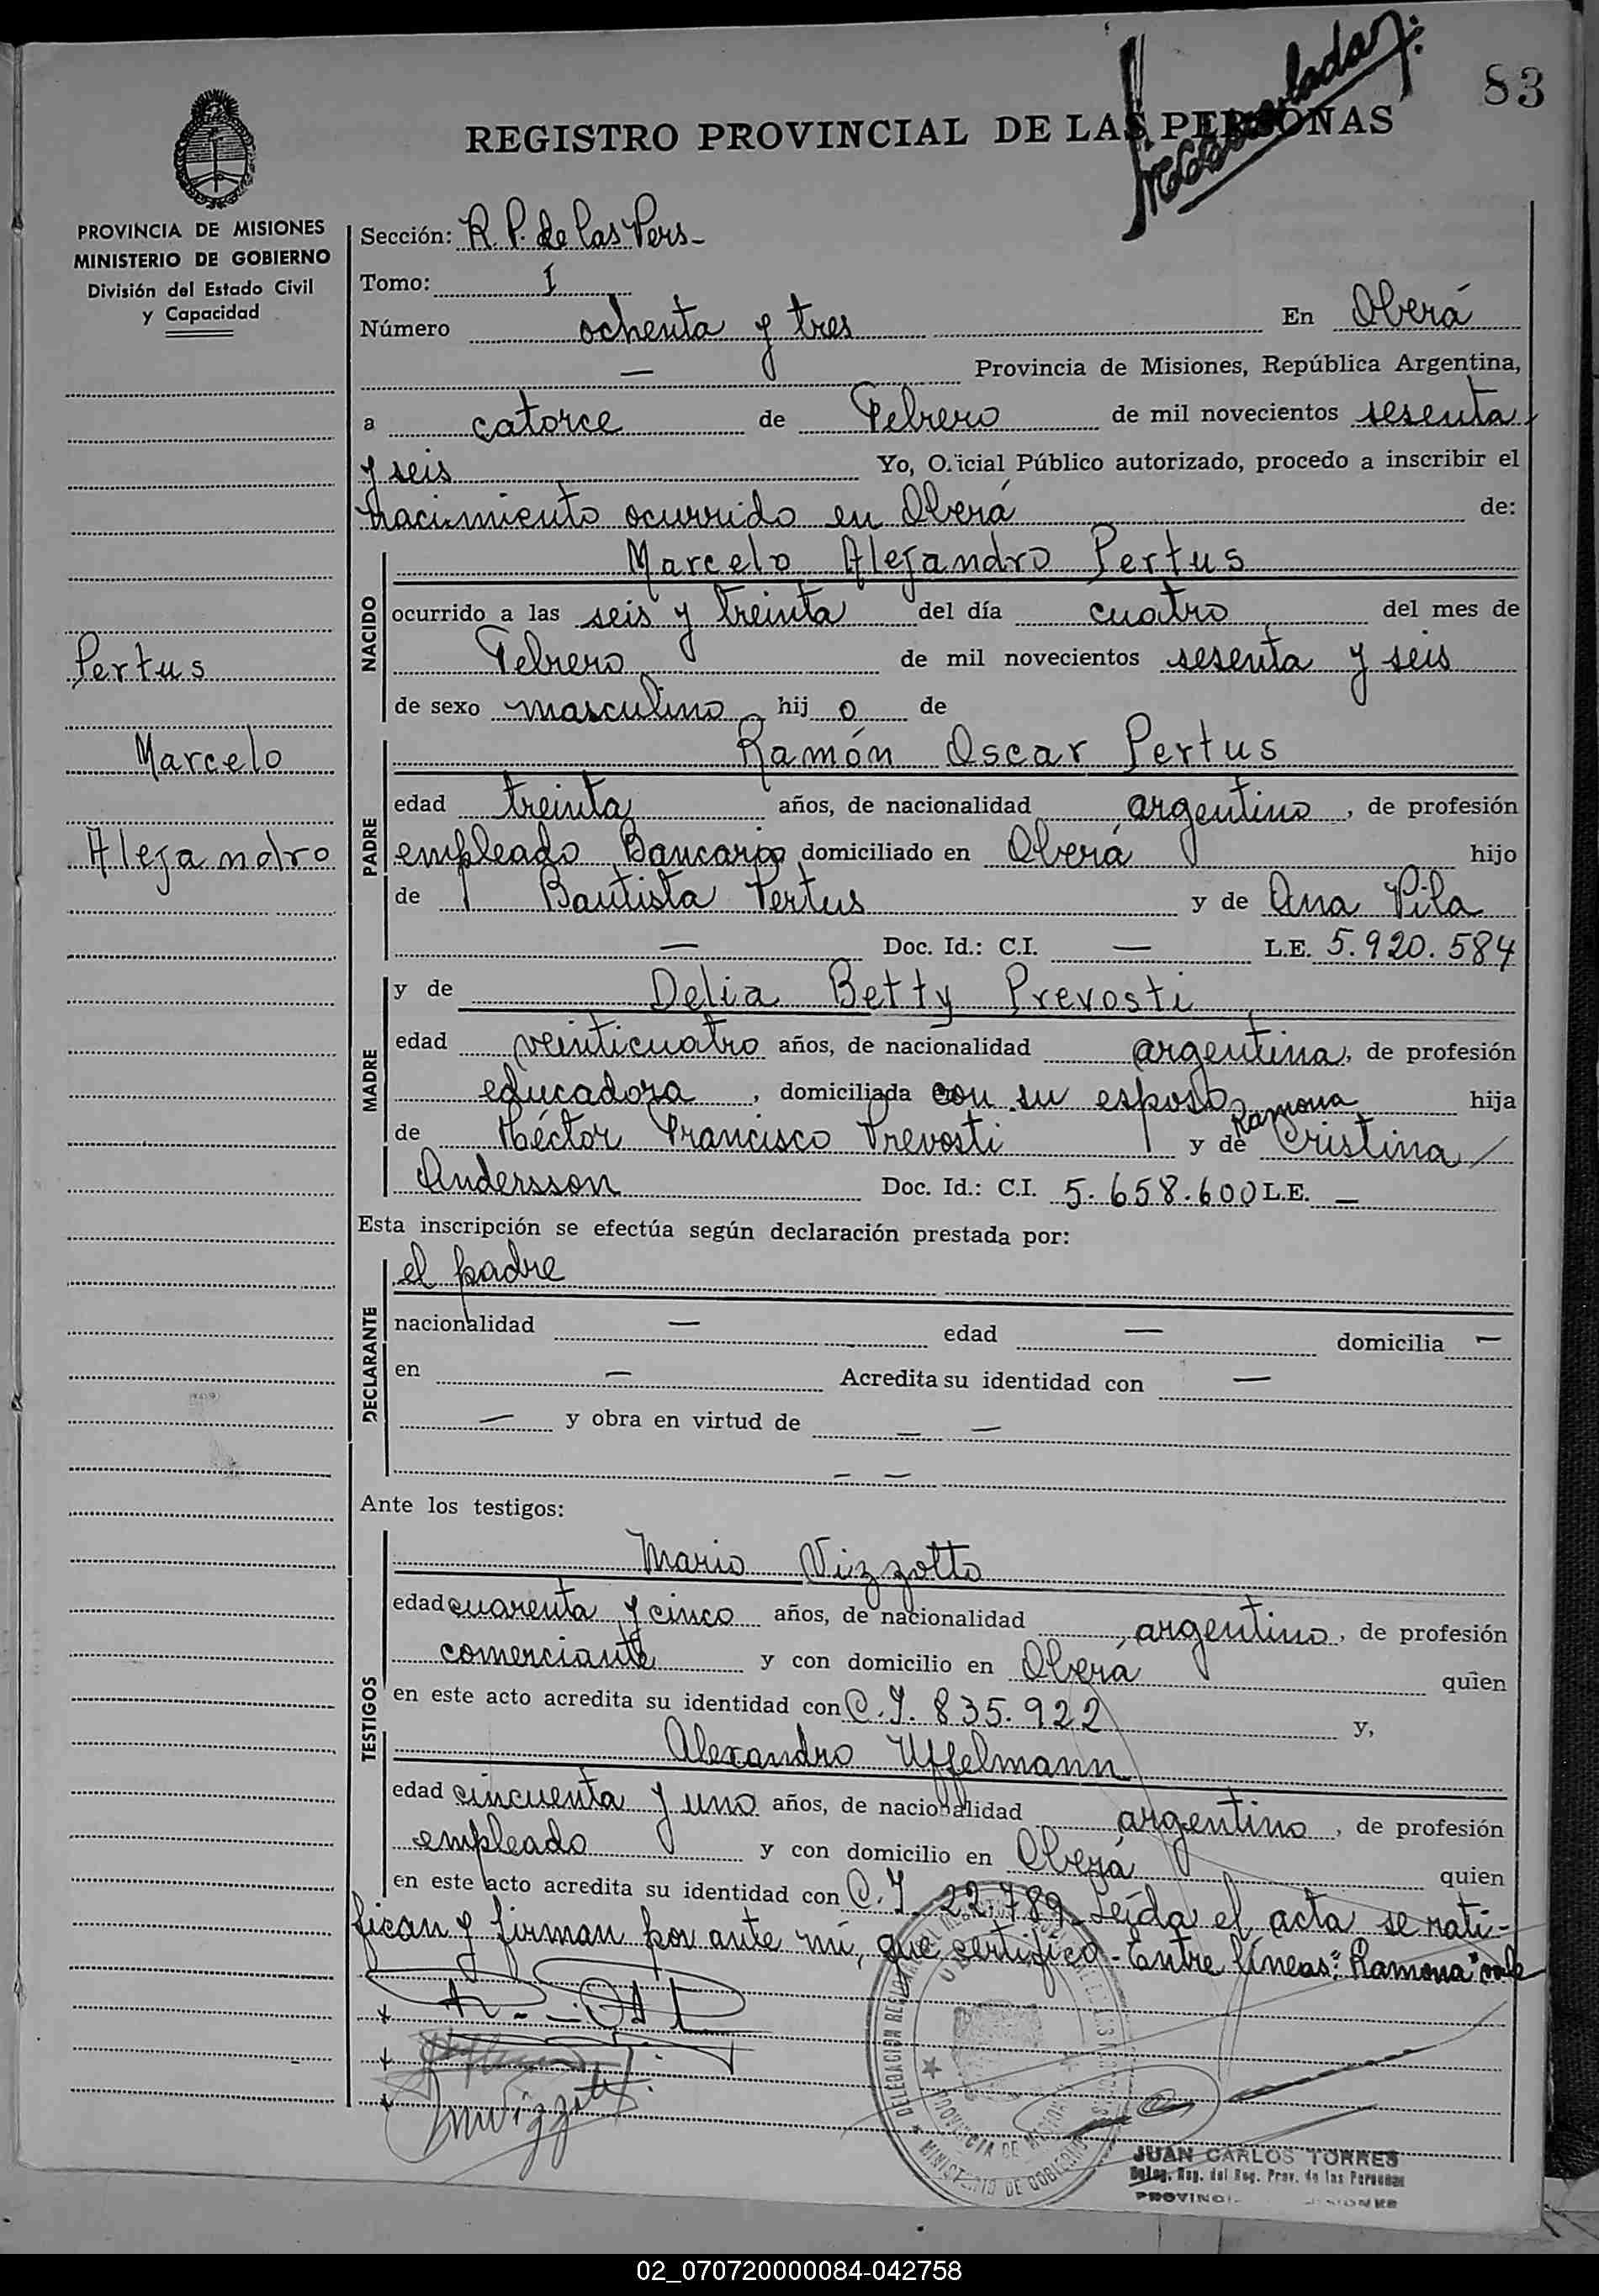 83
REGISTRO PROVINCIAL DE LAS PERSONAS
PROVINCIA DE MISIONES
MINISTERIO DE GOBIERNO
División del Estado Civil
y Capacidad
Pertus
Marcelo
Alejandro
Sección: R. P. de las Pers-
Tomo: I
Número ochenta y tres En Oberá
— Provincia de Misiones, República Argentina,
a catorce de Febrero de mil novecientos sesenta
y seis Yo, Oficial Público autorizado, procedo a inscribir el
nacimiento ocurrido en Oberá de:
NACIDO
Marcelo Alejandro Pertus
ocurrido a las seis y treinta del día cuatro del mes de
Febrero de mil novecientos sesenta y seis
de sexo masculino hij o de
PADRE
Ramón Oscar Pertus
edad treinta años, de nacionalidad argentino, de profesión
empleado Bancario domiciliado en Oberá hijo
de Bautista Pertus y de Ana Pila
— Doc. Id.: C.I. — L.E. 5.920.584
MADRE
y de Delia Betty Prevosti
edad veinticuatro años, de nacionalidad argentina, de profesión
educadora, domiciliada con su esposo hija
Ramona
de Héctor Francisco Prevosti y de Cristina /
Andersson Doc. Id.: C.I. 5.658.600 L.E. —
Esta inscripción se efectúa según declaración prestada por:
DECLARANTE
el padre
nacionalidad — edad — domicilia —
en — Acredita su identidad con —
— y obra en virtud de — —
— —
Ante los testigos:
TESTIGOS
Mario Vizzotto
edad cuarenta y cinco años, de nacionalidad argentino, de profesión
comerciante y con domicilio en Oberá quien
en este acto acredita su identidad con C.I. 835.922 y,
Alexandro Uffelmann
edad cincuenta y uno años, de nacionalidad argentino, de profesión
empleado y con domicilio en Oberá quien
en este acto acredita su identidad con C.I. 22.789. Leída el acta se rati-
fican y firman por ante mí, que certifico - Entre líneas: "Ramona" vale
MINISTERIO DE GOBIERNO
PROVINCIA DE MISIONES
JUAN CARLOS TORRES
Deleg. Reg. del Reg. Prov. de las Personas
02_070720000084-042758